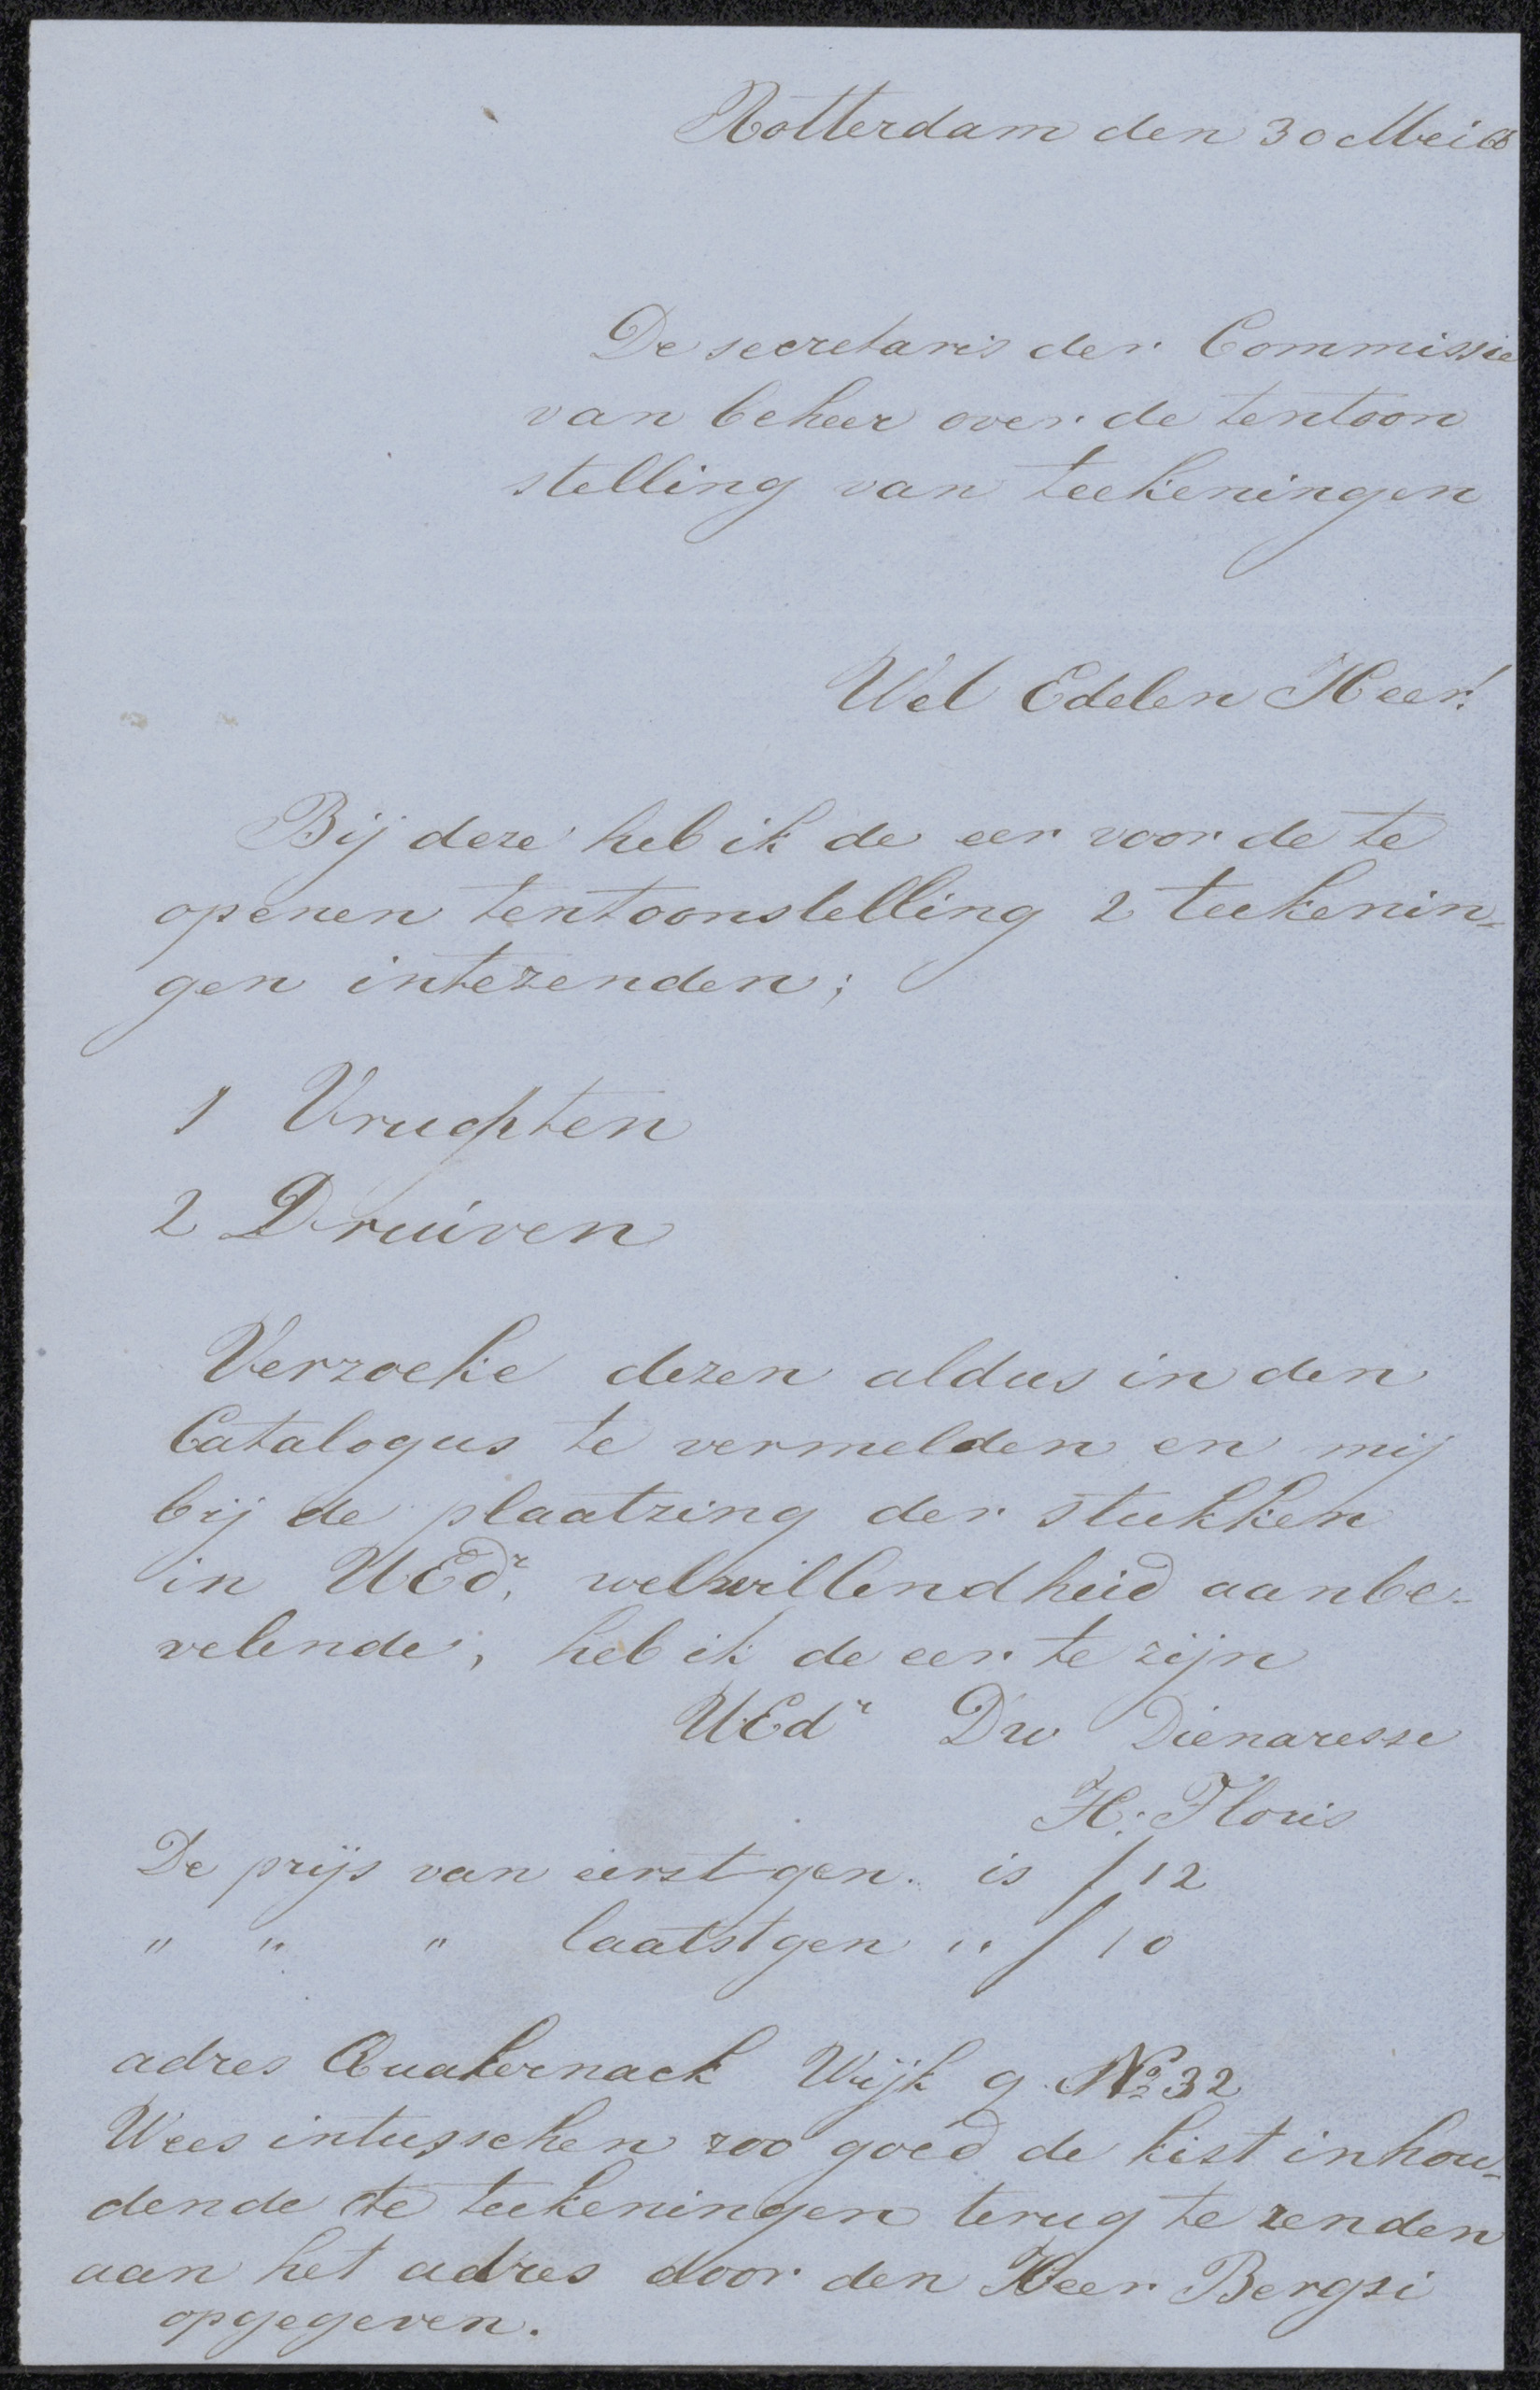 Rotterdam den 30 Mei
De secretaris der Commissie
van beheer over de tentoon
stelling van teekeningen
Wel Edelen Heer!
Bij deze heb ik de eer voor de te
openen tentoonstelling 2 teekenin-
gen intezenden;
1 Vruchten
2 Druiven
Verzoeke dezen aldus in den
Catalogus te vermelden en mij
bij de plaatzing der stukken
in UEdr. welwillendheid aanbe-
velende, heb ik de eer te zijn
UEdr Dw Dienaresse
H. Floris
De prijs van eerstgen. is f 12
" " " laatstgen " f 10
adres Quakernack Wijk 9 No 32
Wees intusschen zoo goed de kist inhou-
dende de teekeningen terug te zenden
aan het adres door den Heer
opgegeven.